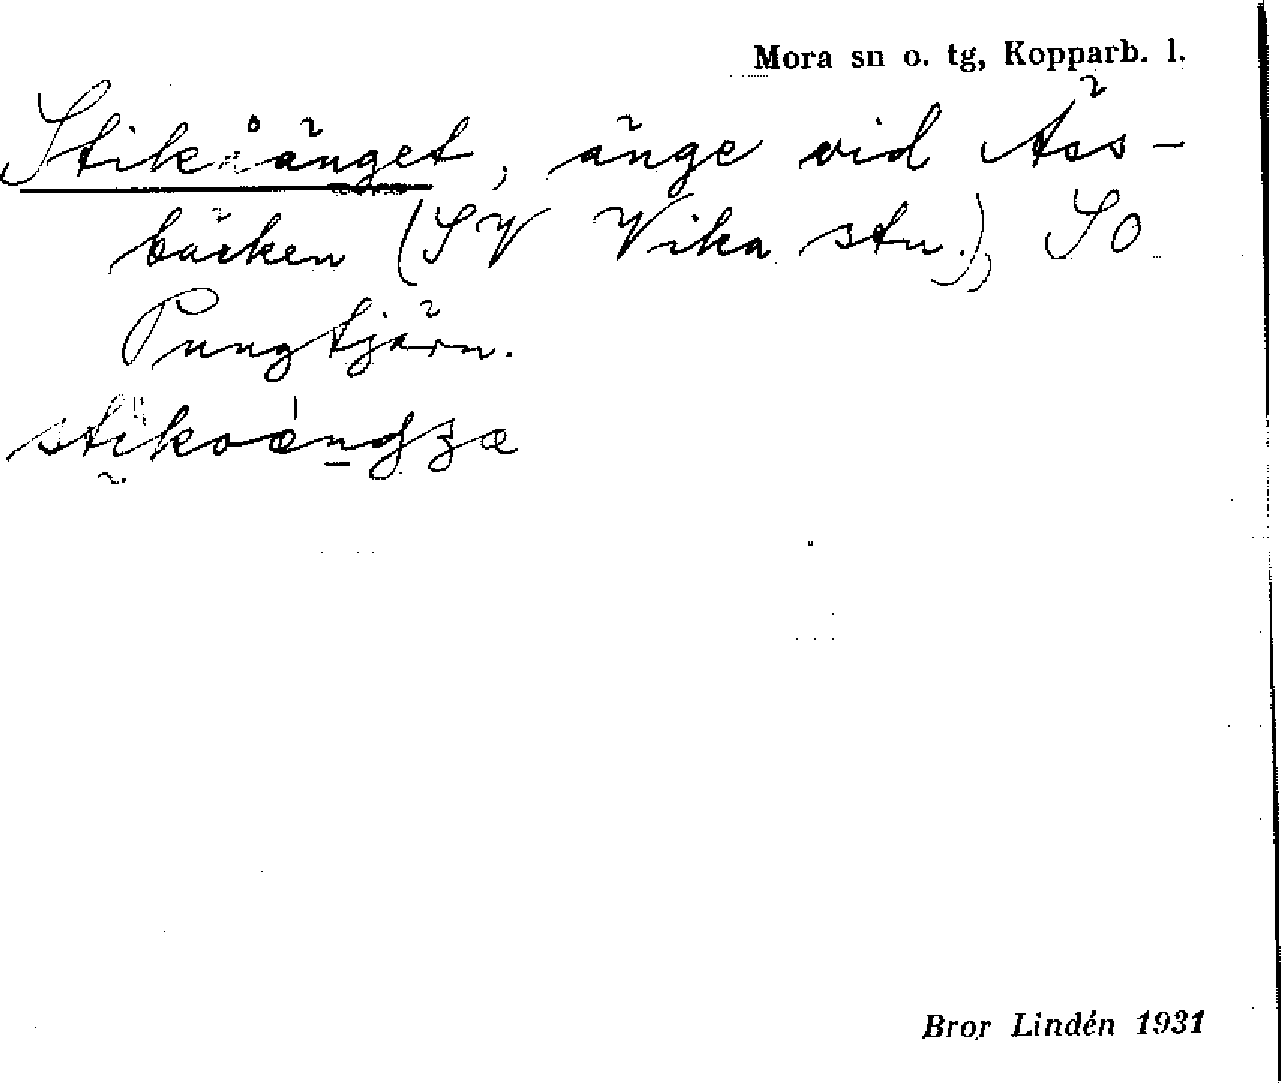 Mora sn o. tg, Kopparb. l.
Stikåänget, änge vid Äss-
bäcken (SV Vika stn.), SO
Pungtjärn.
Bror Lindén 1931